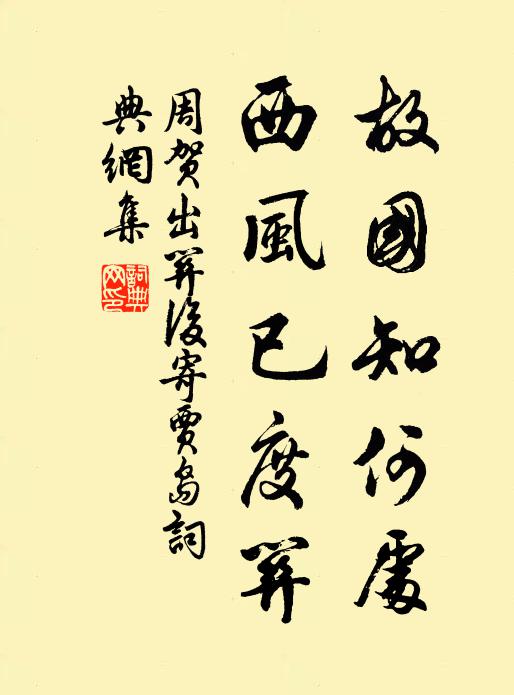 故國知何處
西風已度關
周賀出關後寄賈島詞
典網集
詞典
网印